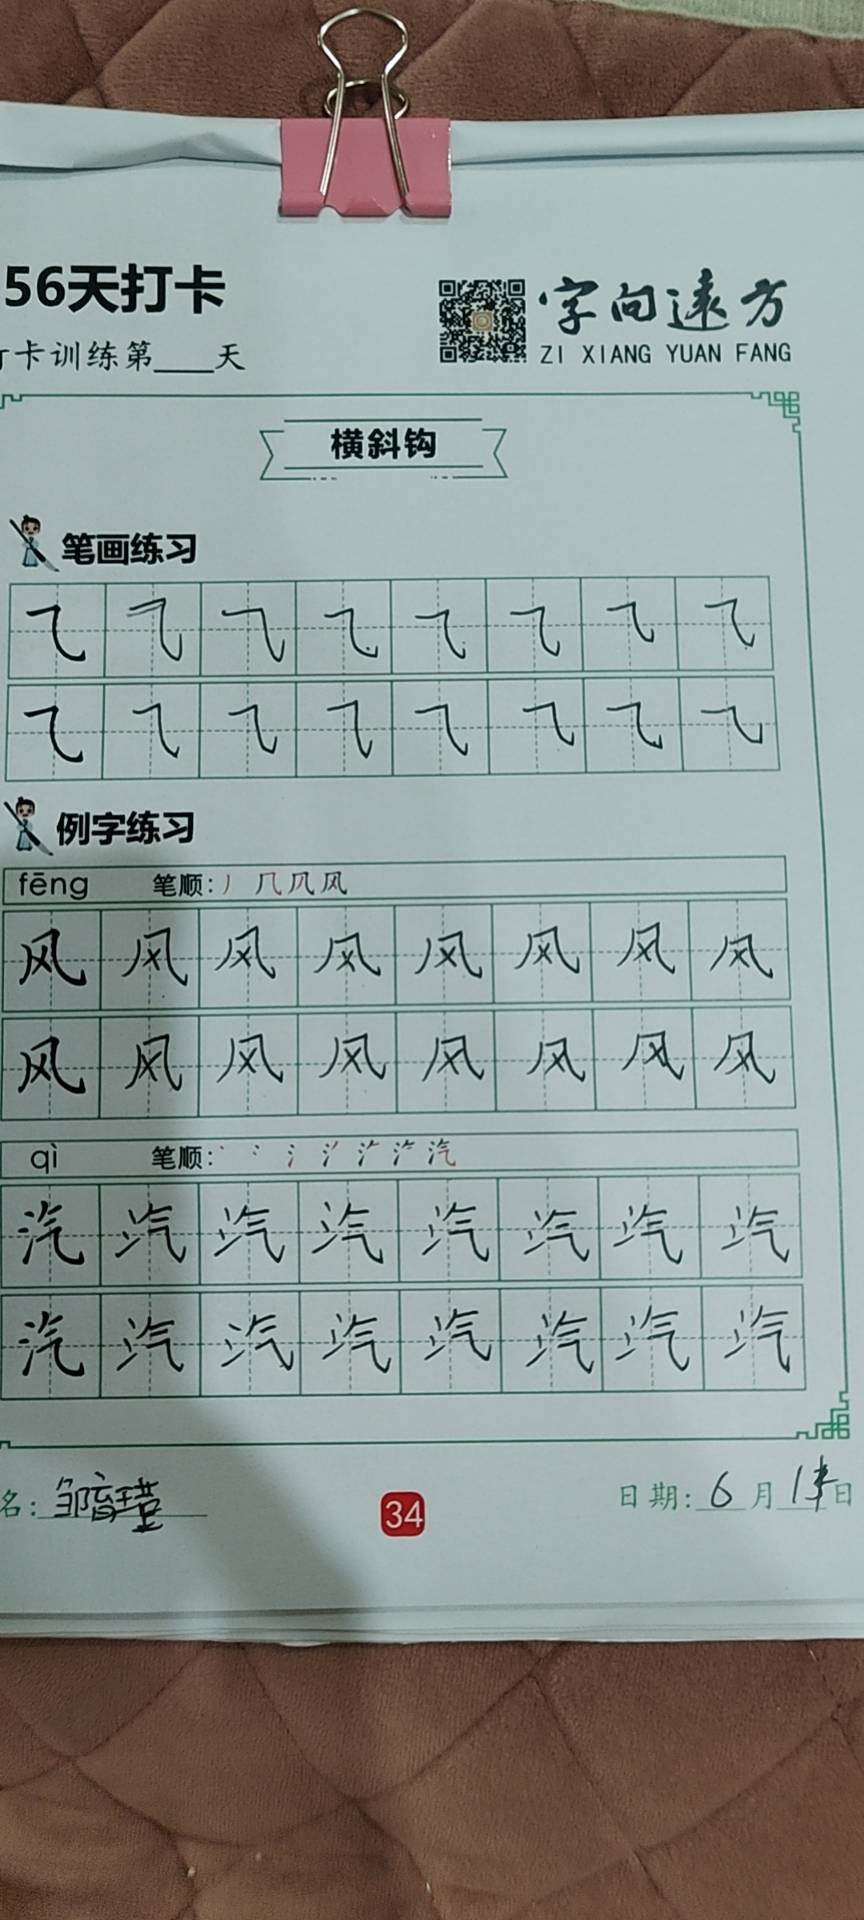 56天打卡
字向远方
卡训练第____天
ZI XIANG YUAN FANG
横斜钩
笔画练习
㇈ ㇈ ㇈ ㇈ ㇈ ㇈ ㇈ ㇈
㇈ ㇈ ㇈ ㇈ ㇈ ㇈ ㇈ ㇈
例字练习
fēng 笔顺:
风 风 风 风 风 风 风 风
风 风 风 风 风 风 风 风
qì 笔顺:
汽 汽 汽 汽 汽 汽 汽 汽
汽 汽 汽 汽 汽 汽 汽 汽
名: 邹
34
日期: 6 月 日